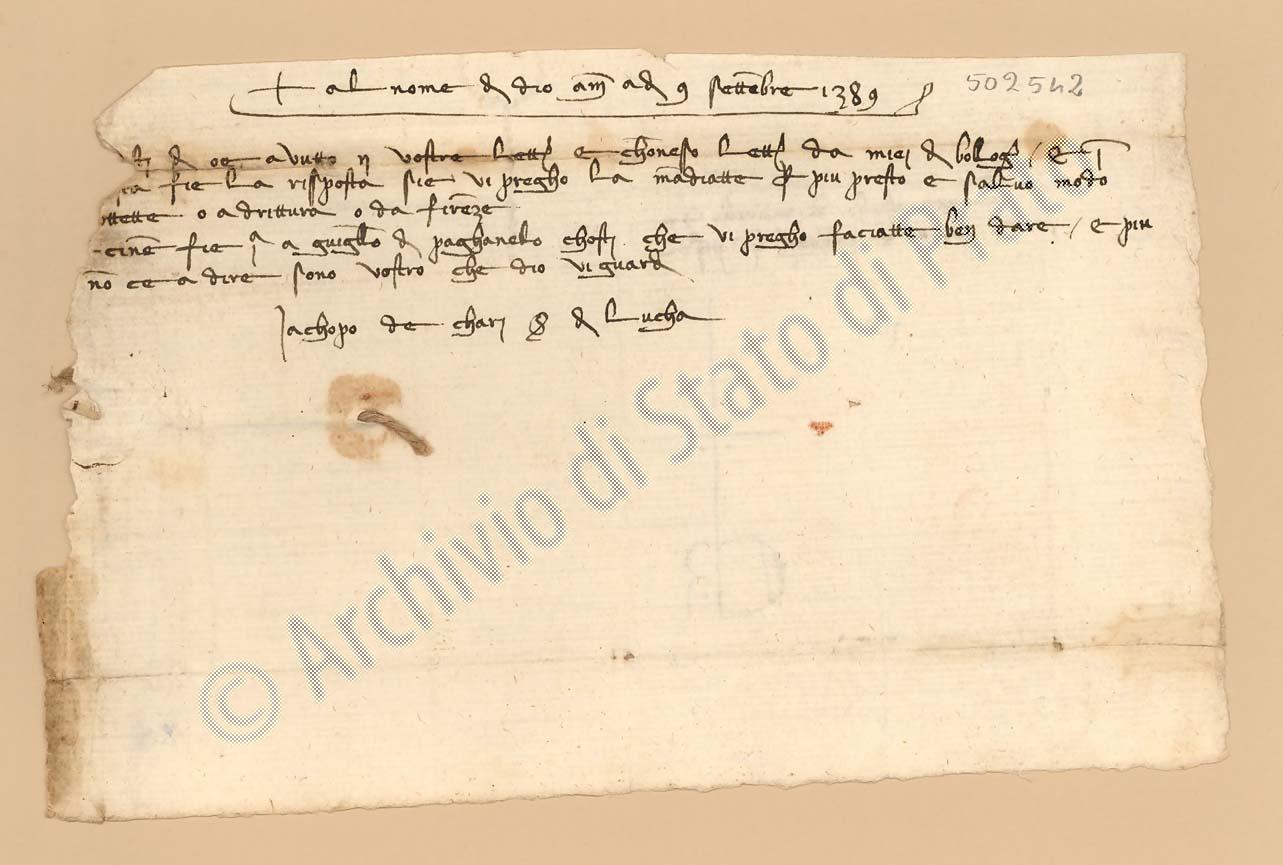 + al nome d dio am̄ ad 9 settēbre 1389
502542
d oe avutto ij vostre lett e chōnesso lett da miei d bolog / E
fie la rissposta sie vi pregho la mādiatte p piu presto e salvo modo
o a drittura o da firēze
fie a guigl̄o d paghanello chosti che vi pregho faciatte ben dare / e piu
nō ce a dire sono vostro che dio vi guard
Jachopo de charj d Lucha
© Archivio di Stato di Prato